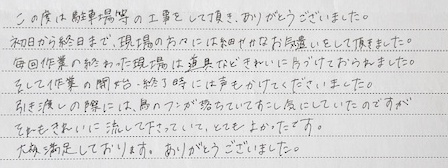 この度は駐車場等の工事をして頂き、ありがとうございました。
初日から終日まで、現場の方々には細やかなお気遣いをして頂きました。
毎回作業の終わった現場は道具などきれいに片づけておられました。
そして作業の開始・終了時には声もかけてくださいました。
引き渡しの際には、鳥のフンが落ちていてすこし気にしていたのですが
それもきれいに流して下さっていて、とてもよかったです。
大板満足しております。ありがとうございました。